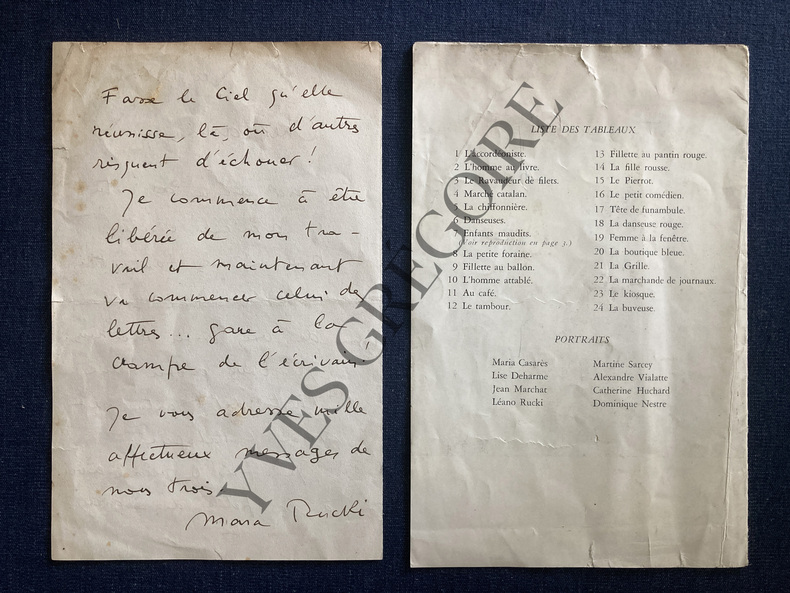 Fasse le Ciel qu'elle
réussisse, là, où d'autres
risquent d'échouer !
Je commence à être
libérée de mon tra-
vail et maintenant
va commencer celui des
lettres... gare à la
crampe de l'écrivain !
Je vous adresse mille
affectueux messages de
nous trois
Mara Rucki
LISTE DES TABLEAUX
1 L'accordéoniste.
2 L'homme au livre.
3 Le Ravaudeur de filets.
4 Marché catalan.
5 La chiffonnière.
6 Danseuses.
7 Enfants maudits.
(Voir reproduction en page 3.)
8 La petite foraine.
9 Fillette au ballon.
10 L'homme attablé.
11 Au café.
12 Le tambour.
13 Fillette au pantin rouge.
14 La fille rousse.
15 Le Pierrot.
16 Le petit comédien.
17 Tête de funambule.
18 La danseuse rouge.
19 Femme à la fenêtre.
20 La boutique bleue.
21 La Grille.
22 La marchande de journaux.
23 Le kiosque.
24 La buveuse.
PORTRAITS
Maria Casarès
Lise Deharme
Jean Marchat
Léano Rucki
Martine Sarcey
Alexandre Vialatte
Catherine Huchard
Dominique Nestre
YVES GRÉGOIRE